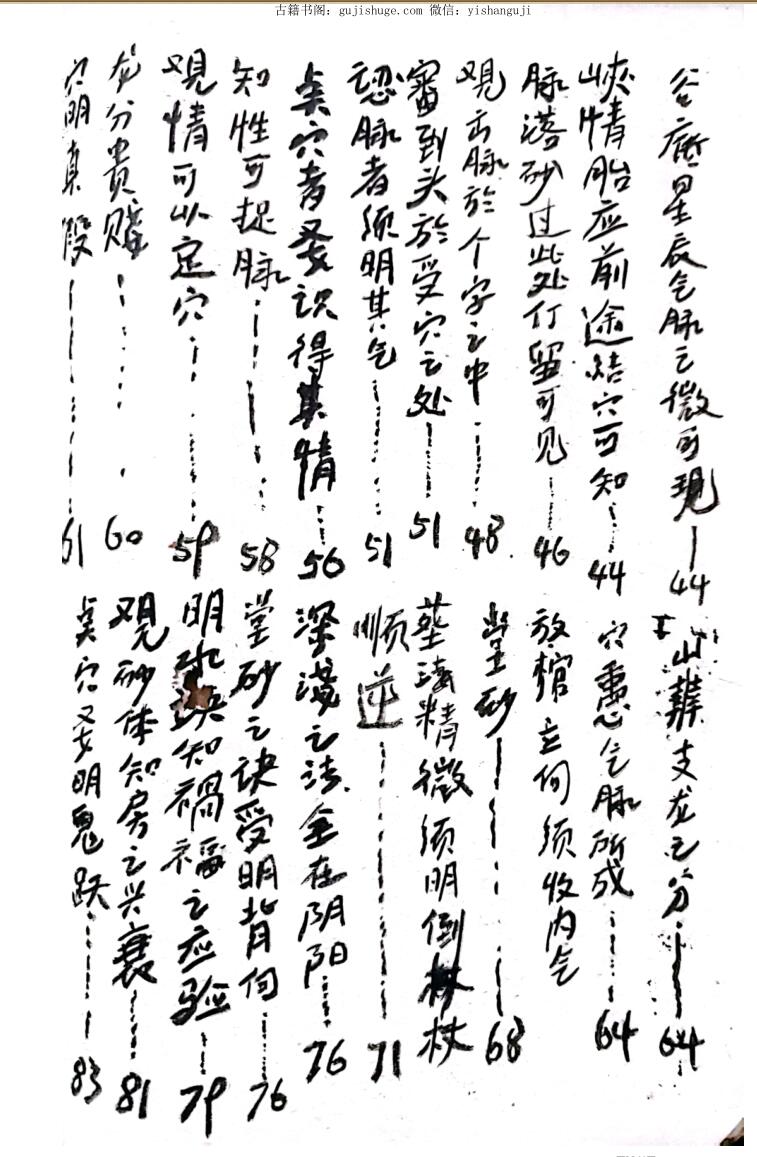 古籍书阁：gujishuge.com 微信：yishanguji
谷应星辰气脉之微可现 44
峡情胎应前途结穴可知 44
脉落砂过此处行留可见 46
观出脉於个字之中 48
審到头於受穴之处 51
認脉者须明其气 51
点穴者要识得其情 56
知性可捉脉 58
观情可以定穴 59
龙分貴贱 60
穴明真假 61
山葬支龙之分 64
穴恶气脉所成 64
放棺立向须收内气
堂砂 68
葬法精微须明倒杖
顺逆 71
深浅之法全在阴阳 76
堂砂之诀受明背向 76
明水诀知禍福之应验 79
观砂体知房之兴衰 81
点穴要明鬼跃 83